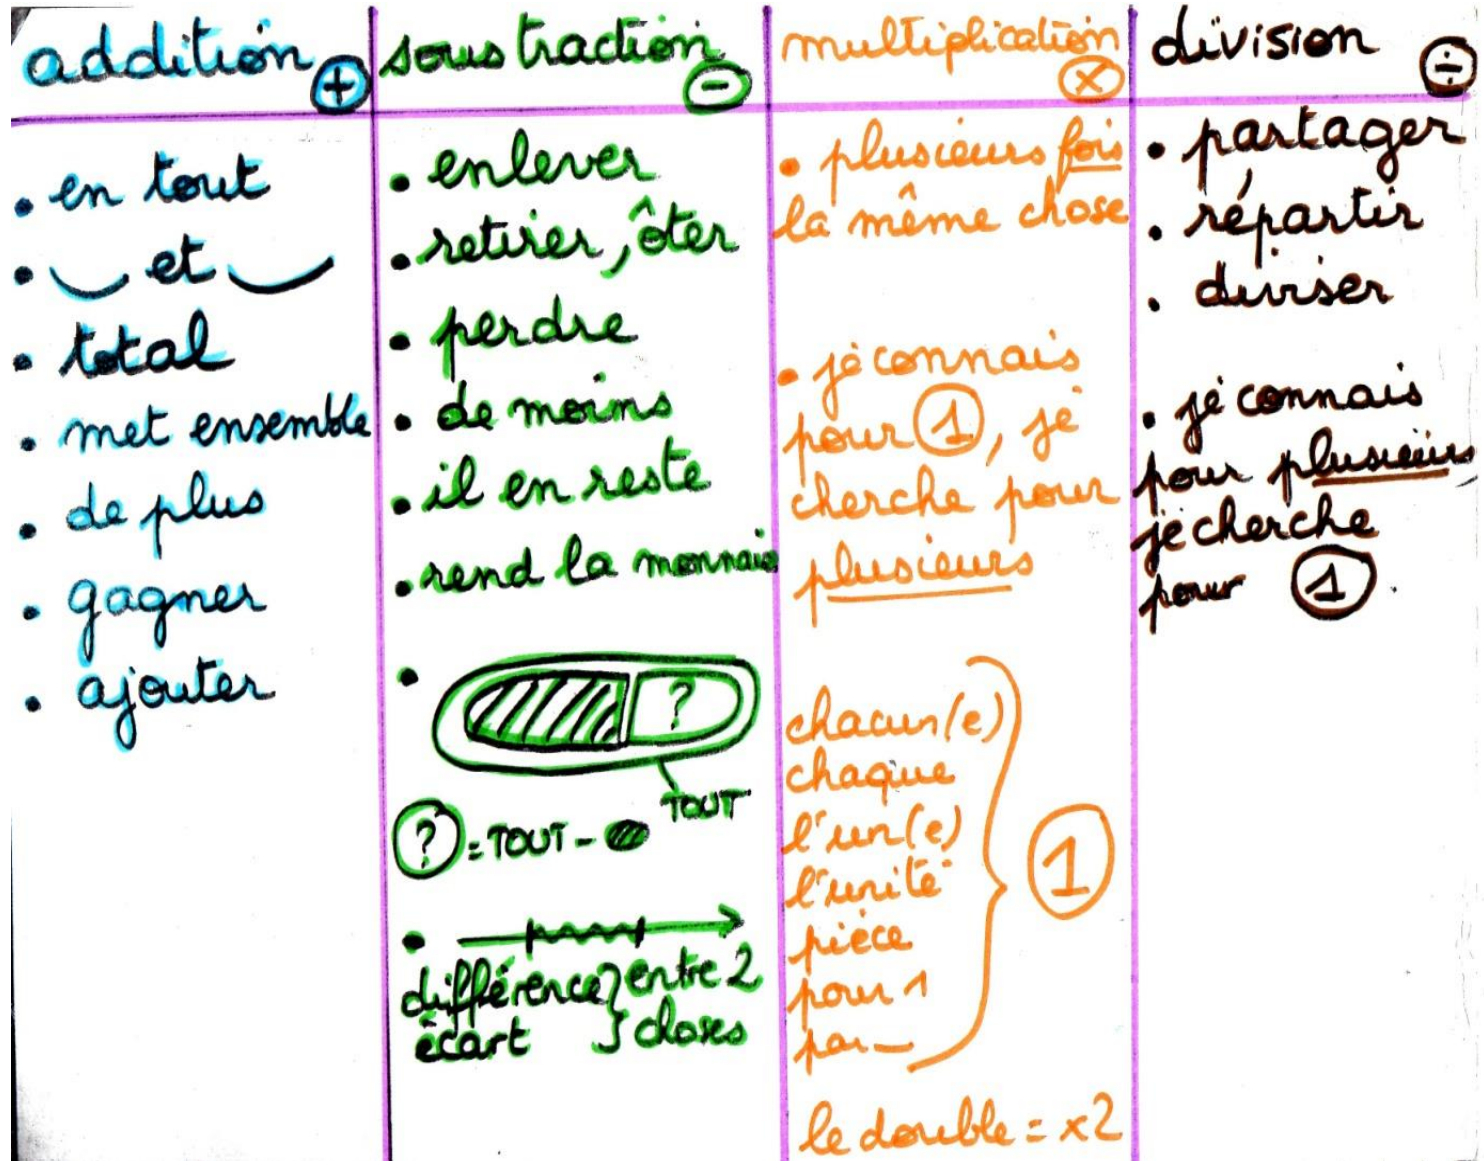 addition +
en tout
et
total
met ensemble
de plus
gagner
ajouter
soustraction -
enlever
retirer, ôter
perdre
de moins
il en reste
rend la monnaie
?
TOUT
? = TOUT -
différence } entre 2
écart } choses
multiplication x
plusieurs fois
la même chose
je connais
pour 1, je
cherche pour
plusieurs
chacun(e)
chaque
l'un(e)
l'unité
pièce
pour 1
par _
1
le double = x2
division ÷
partager
répartir
diviser
je connais
pour plusieurs,
je cherche
pour 1.